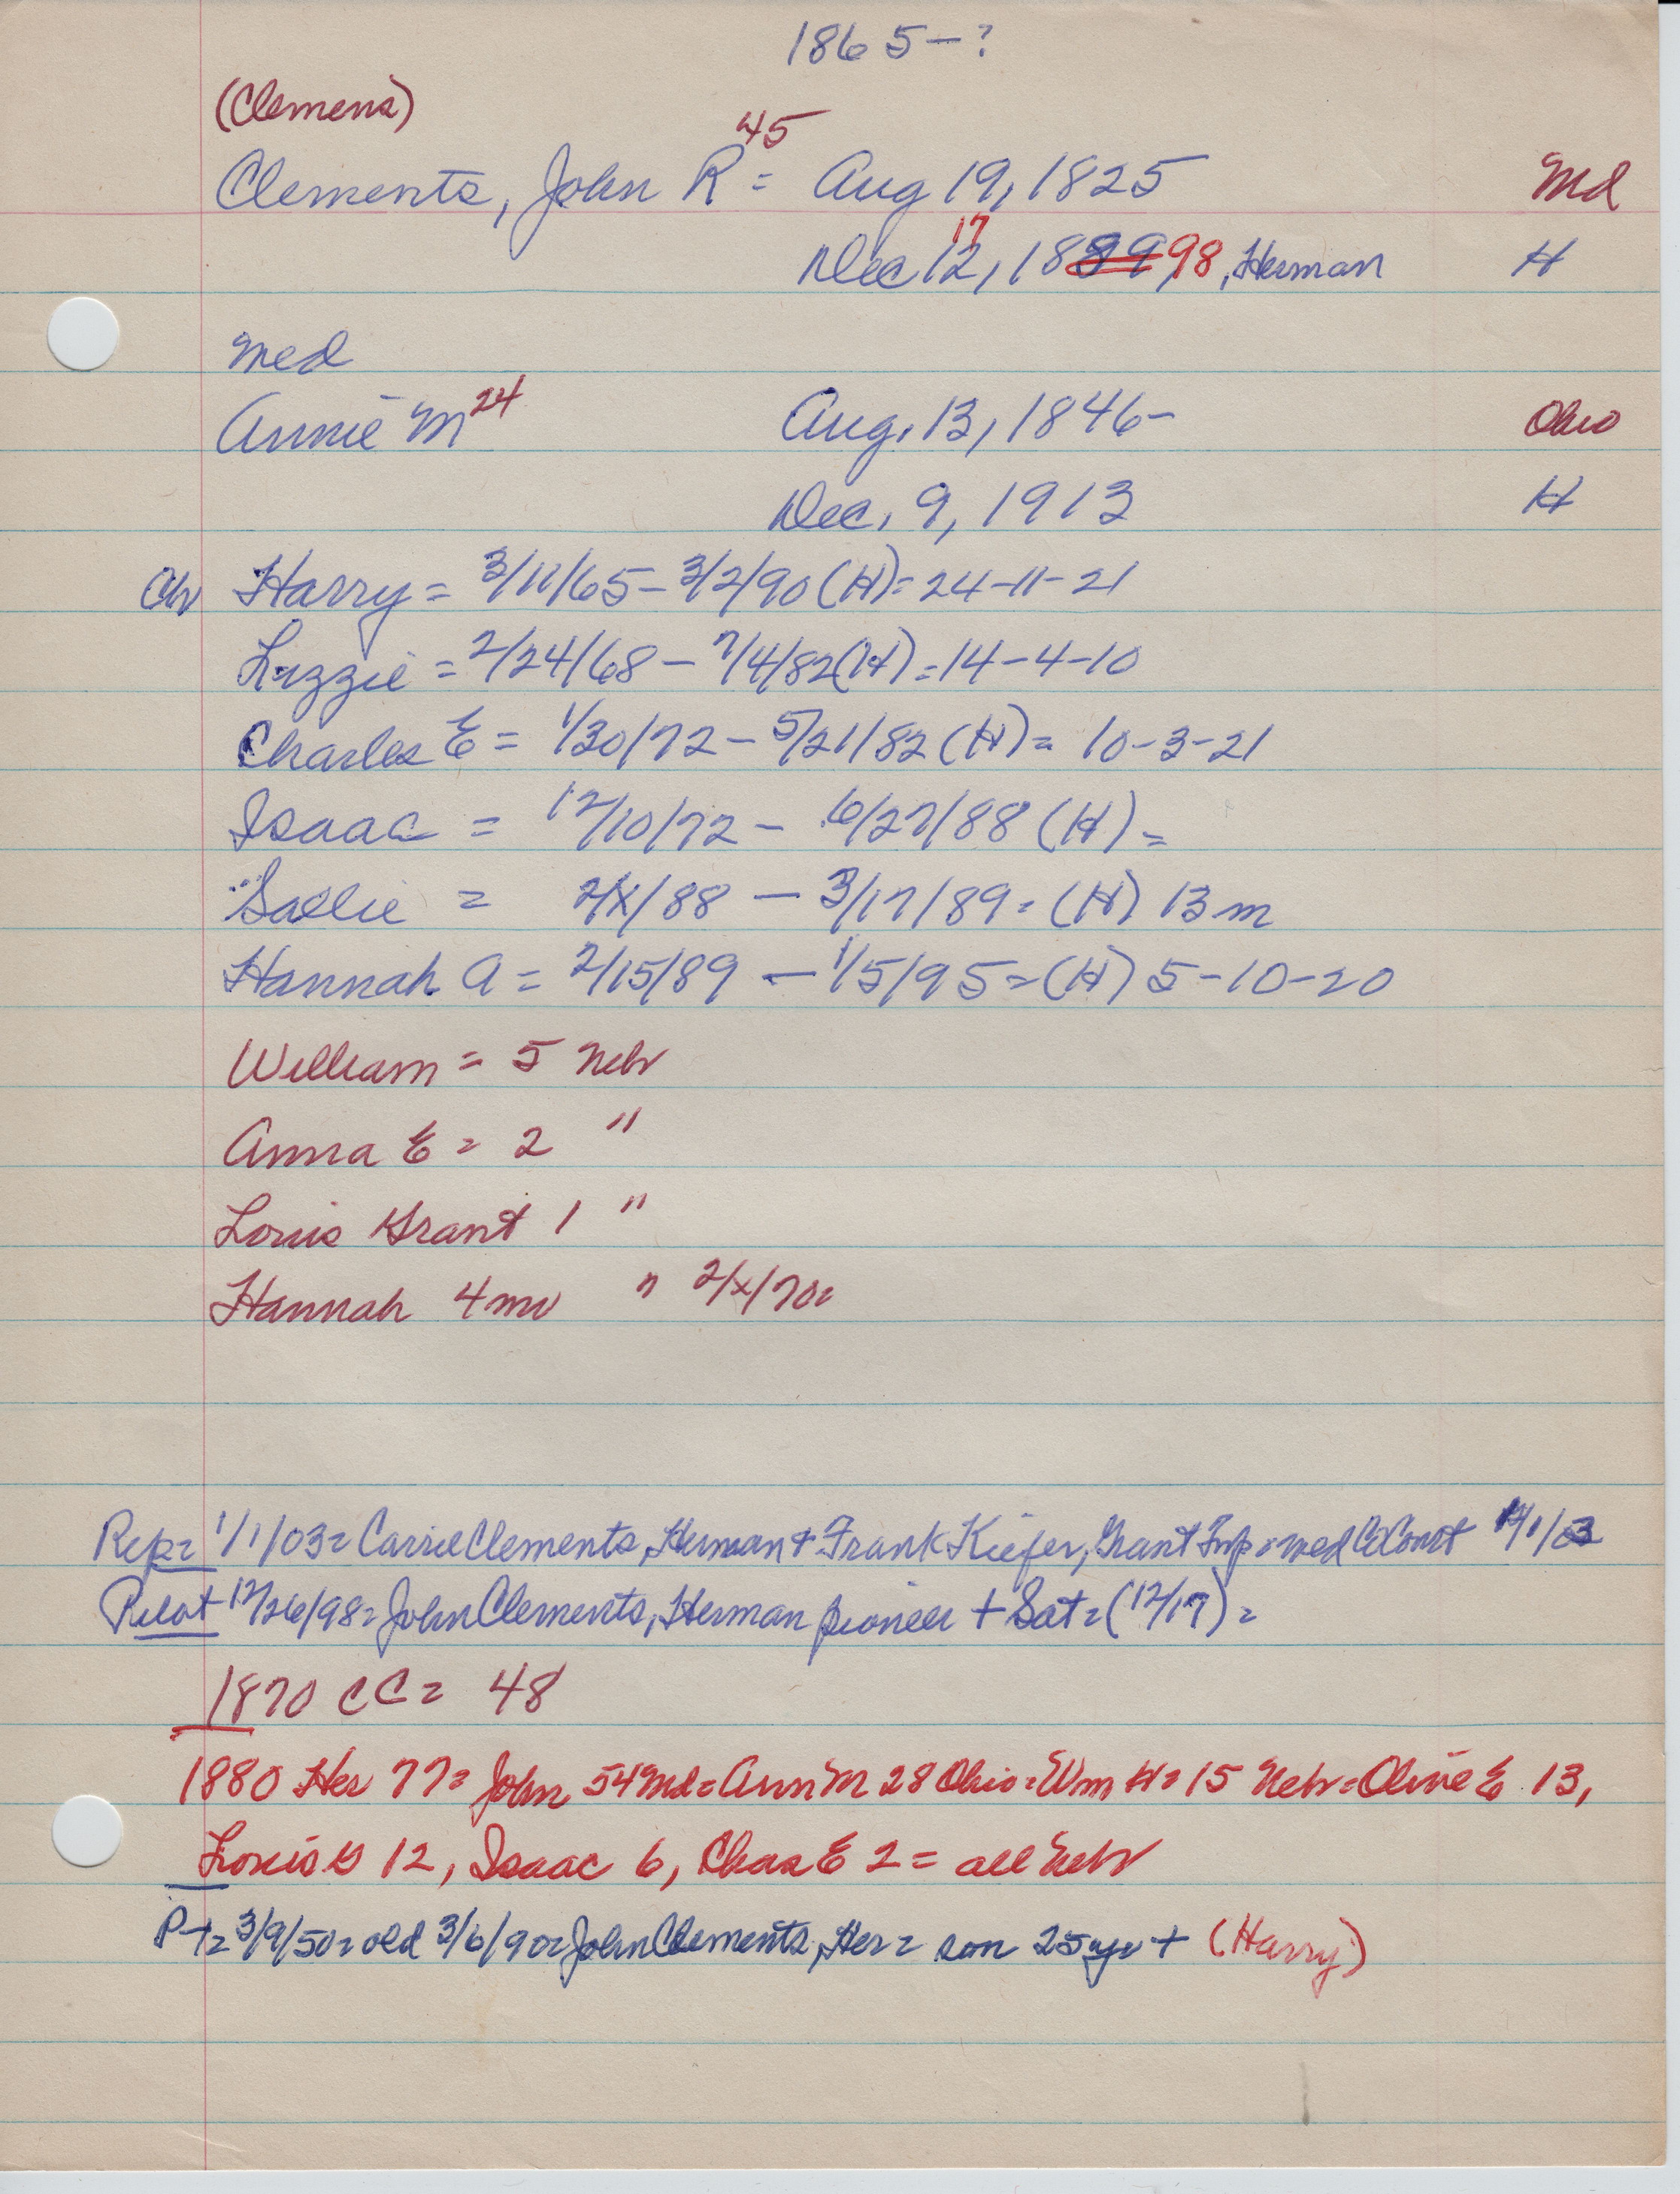 1865-?
(Clemens)
45
Clements, John R = Aug 19, 1825 Md
17
Dec 12, 1889 98, Herman H
med
Annie M 24 Aug. 13, 1846- Ohio
Dec. 9, 1913 H
Ch Harry = 3/11/65 - 3/2/90 (H) = 24-11-21
Lizzie = 2/24/68 - 7/4/82 (H) = 14-4-10
Charles E = 1/30/72 - 5/21/82 (H) = 10-3-21
Isaac = 12/10/72 - 6/27/88 (H) =
Sallie = 2/x/88 - 3/17/89 = (H) 13 m
Hannah A = 2/15/89 - 1/5/95 = (H) 5-10-20
William = 5 Nebr
Anna E = 2 "
Louis Grant 1 "
Hannah 4 mo " 2/x/70=
Rep = 1/1/03 = Carrie Clements, Herman + Frank Kiefer, Grant Twp = med CoCourt 1/1/03
Pilot 12/26/98 = John Clements, Herman pioneer + Sat = (12/17) =
1870 CC = 48
1880 Her 77 = John 54 Md = Ann M 28 Ohio = Wm H = 15 Nebr = Olive E 13,
Louis G 12, Isaac 6, Chas E 2 = all Nebr
P-T = 3/9/50 = old 3/6/90 = John Clements, Her = son 25 yr + (Harry)